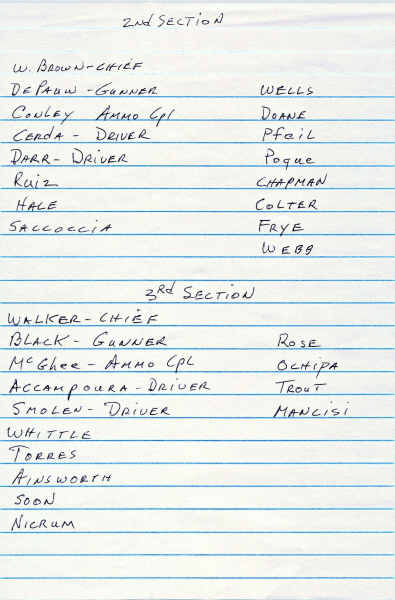 2nd SECTION
W. BROWN - CHIEF
DEPAUW - GUNNER WELLS
CONLEY AMMO Cpl DOANE
CERDA - DRIVER Pfeil
DARR - DRIVER Poque
Ruiz CHAPMAN
HALE COLTER
SACCOCCIA FRYE
WEBB
3Rd SECTION
WALKER - CHIEF
BLACK - GUNNER ROSE
McGhee - AMMO Cpl OCHIPA
ACCAMPOURA - DRIVER TROUT
SMOLEN - DRIVER MANCISI
WHITTLE
TORRES
AINSWORTH
SOON
NICRUM